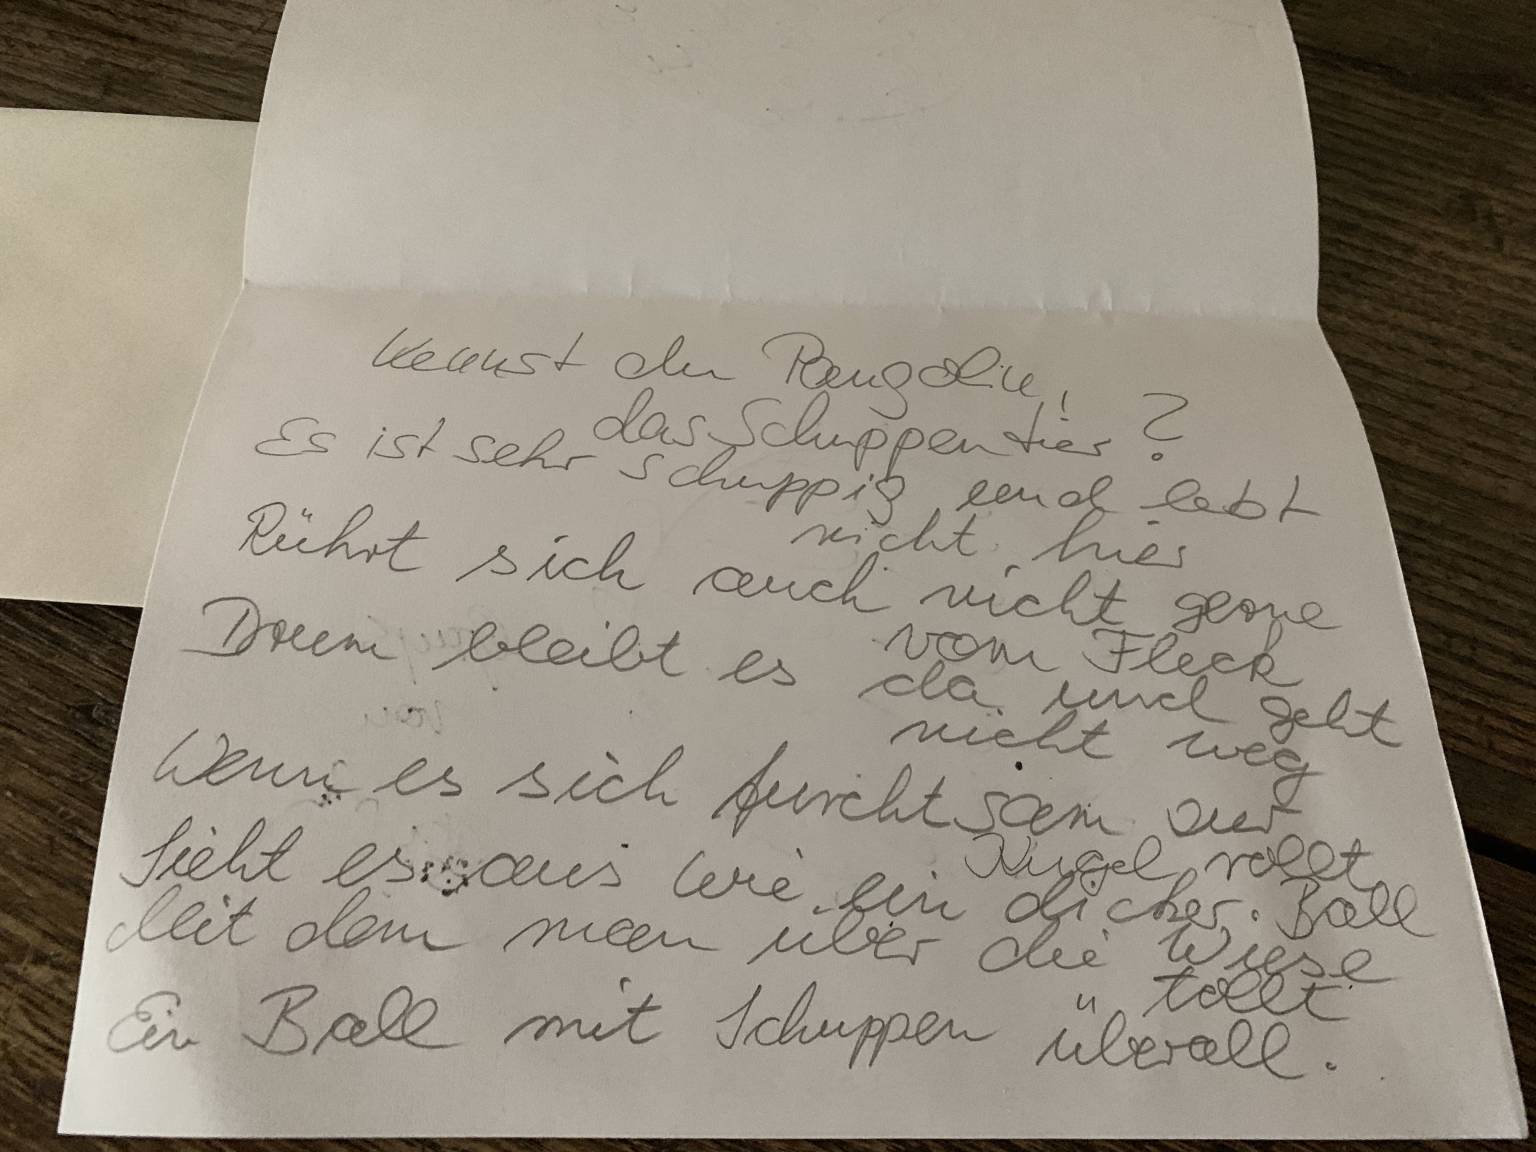 Kennst du Pangolin,
das Schuppentier?
Es ist sehr schuppig und lebt
nicht hier
Rührt sich auch nicht gerne
vom Fleck
Drum bleibt es da und geht
nicht weg
Wenn es sich furchtsam zur
Kugel rollt
Sieht es aus wie ein dicker Ball
Mit dem man über die Wiese
tollt
Ein Ball mit Schuppen überall.